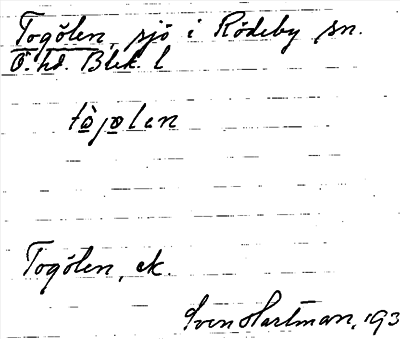 Togölen, sjö i Rödeby sn.
Ö. hd. Blek. l
tòjɷlen
Togölen, ek.
Sven Hartman, 193